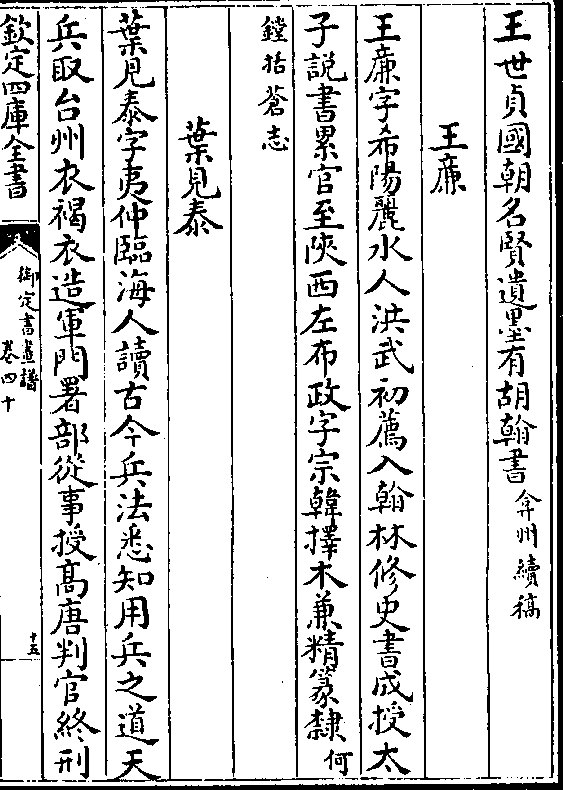 王世貞國朝名賢遺墨有胡翰書弇州續稿
王廉
王廉字希陽麗水人洪武初薦入翰林修史書成授太
子説書累官至陝西左布政字宗韓擇木兼精篆隸何
鏜括蒼志
葉見泰
葉見泰字夷仲臨海人讀古今兵法悉知用兵之道天
兵取台州衣褐衣造軍門署部從事授髙唐判官終刑
欽定四庫全書
御定書畫譜
卷四十
十五